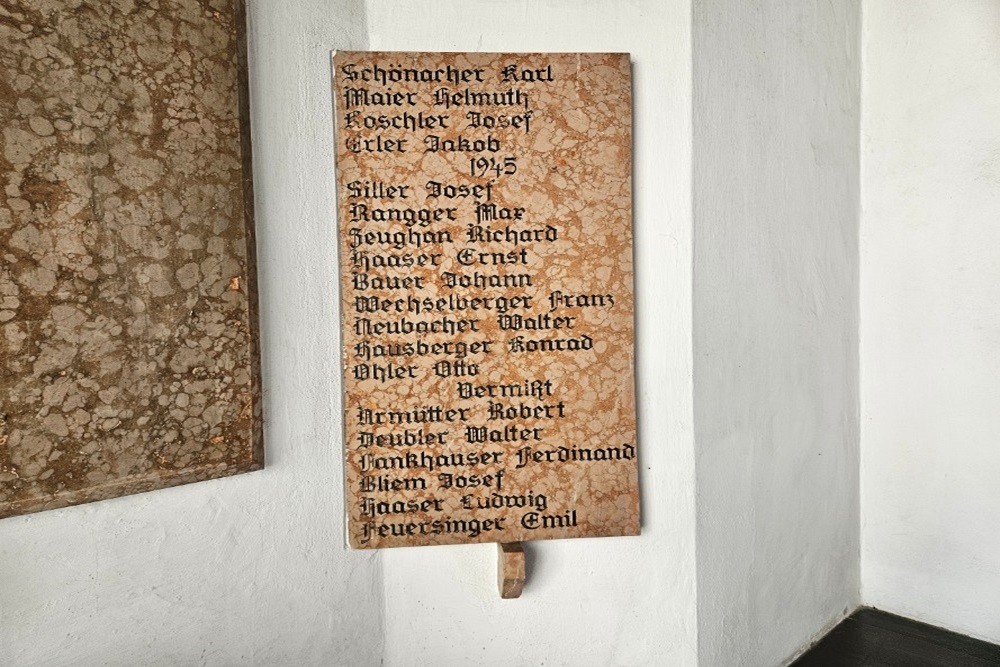 Schönacher Karl
Maier Helmuth
Koschler Josef
Erler Jakob
1945
Siller Josef
Rangger Max
Zeughan Richard
Haaser Ernst
Bauer Johann
Wechselberger Franz
Neubacher Walter
Hausberger Konrad
Ohler Otto
Vermißt
Armütter Robert
Deubler Walter
Fankhauser Ferdinand
Bliem Josef
Haaser Ludwig
Feuersinger Emil